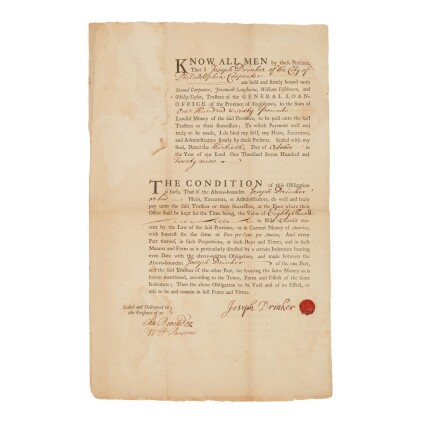 KNOW ALL MEN by these Presents,
That I Joseph Drinker of the City of
Philadelphia Carpenter
am held and firmly bound unto
Samuel Carpenter, Jeremiah Langhorne, William Fishbourn, and
Philip Taylor, Trustees of the GENERAL LOAN-
OFFICE of the Province of Pennsylvania, in the Sum of
One Hundred & sixty Pounds
Lawful Money of the said Province, to be paid unto the said
Trustees or their Successors; To which Payment well and
truly to be made, I do bind my Self, my Heirs, Executors,
and Administrators firmly by these Presents. Sealed with my
Seal, Dated the Thirtieth Day of October in
the Year of our Lord One Thousand Seven Hundred and
twenty nine
THE CONDITION of this Obligation
is such, That if the Above-bounden Joseph Drinker
Heirs, Executors, or Administrators, do well and truly
pay unto the said Trustees or their Successors, at the Place where their
Office shall be kept for the Time being, the Value of Eighty Pounds
in
by the Law of the said Province, or in Current Money of America,
with Interest for the same at Five per Cent. per Annum, And every
Part thereof, in such Proportions, at such Days and Times, and in such
Manner and Form as is particularly directed by a certain Indenture bearing
even Date with the above-written Obligation, and made between the
Above-bounden Joseph Drinker of the one Part,
and the said Trustees of the other Part, for securing the same Money as is
herein mentioned, according to the Tenor, Form and Effect of the same
Indenture; Then the above Obligation to be Void and of no Effect, or
else to be and remain in full Force and Virtue.
Sealed and Delivered in
the Presence of us
Joseph Drinker